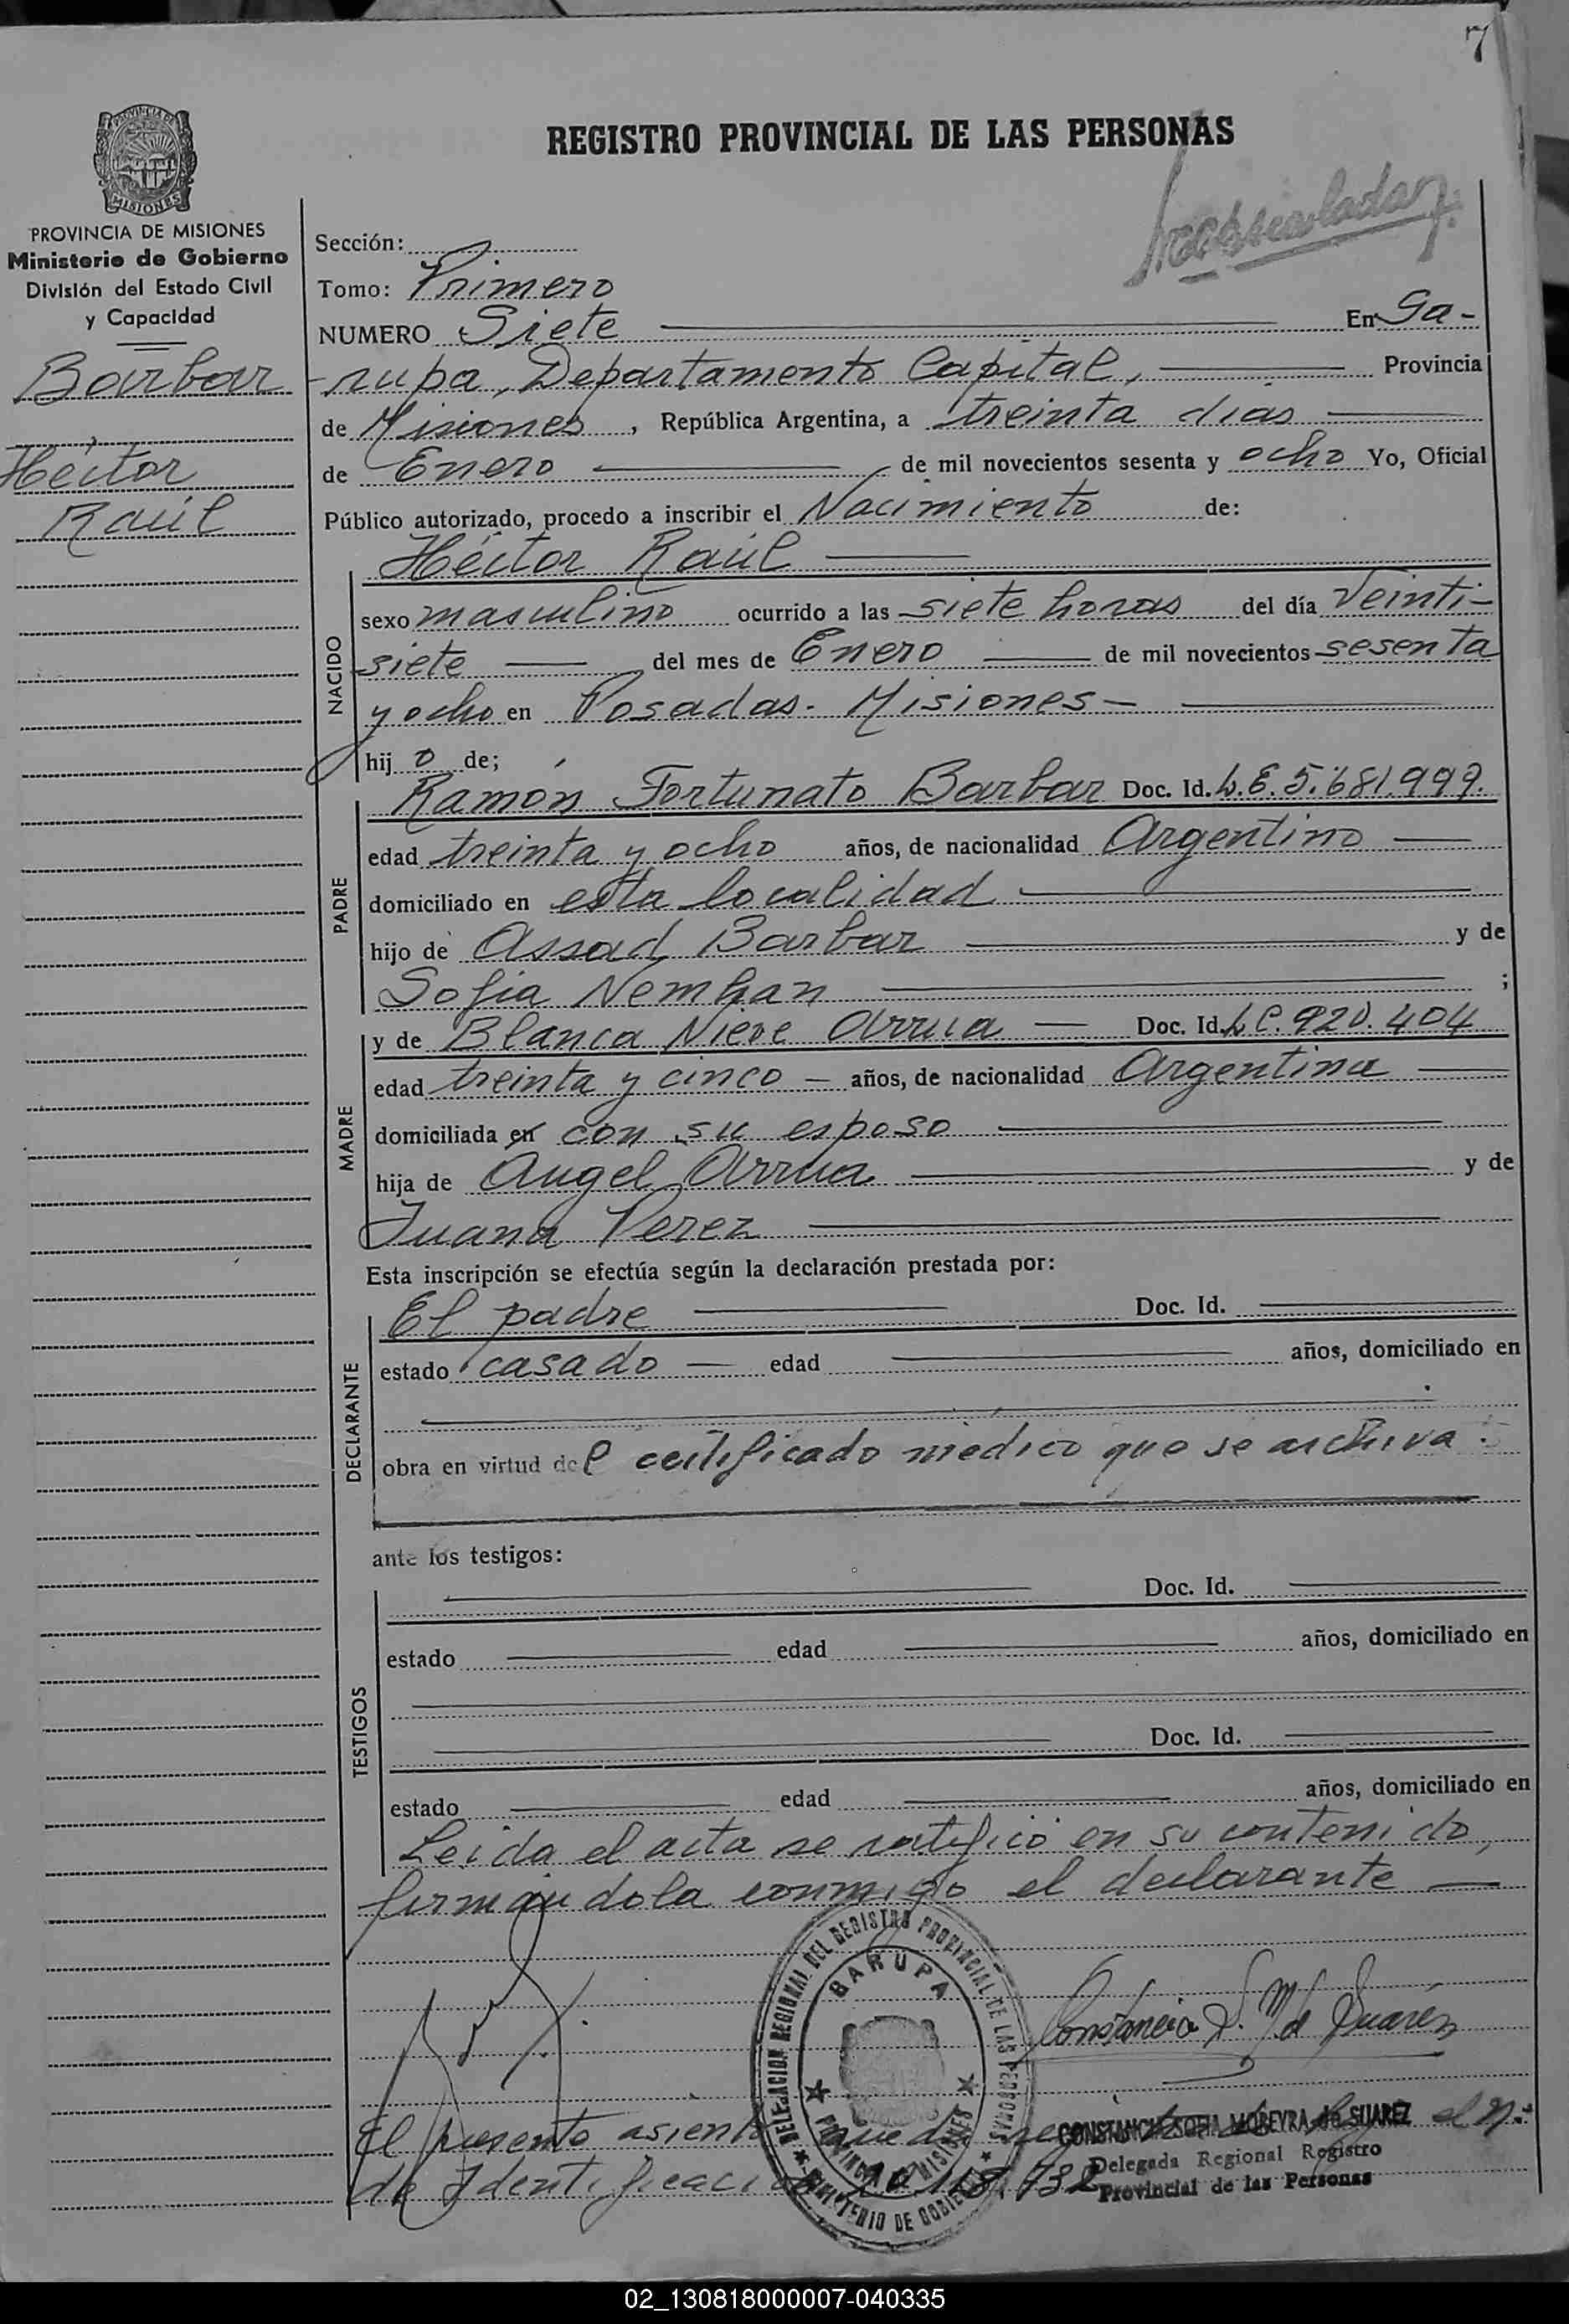 7
REGISTRO PROVINCIAL DE LAS PERSONAS
PROVINCIA DE
MISIONES
PROVINCIA DE MISIONES
Ministerio de Gobierno
División del Estado Civil
y Capacidad
Barbar
Héctor
Raúl
Sección:
Tomo: Primero
NUMERO Siete En Ga-
rupa, Departamento Capital, Provincia
de Misiones, República Argentina, a treinta dias
de Enero de mil novecientos sesenta y ocho Yo, Oficial
Público autorizado, procedo a inscribir el Nacimiento de:
Héctor Raúl
NACIDO
sexo masculino ocurrido a las siete horas del día Veinti-
siete del mes de Enero de mil novecientos sesenta
y ocho en Posadas. Misiones
hijo de;
PADRE
Ramón Fortunato Barbar Doc. Id. L.E. 5.681.999.
edad treinta y ocho años, de nacionalidad Argentino
domiciliado en esta localidad
hijo de Assad Barbar y de
Sofia Nemhan ;
MADRE
y de Blanca Nieve Arrua Doc. Id. L.C. 920.404
edad treinta y cinco años, de nacionalidad Argentina
domiciliada en con su esposo
hija de Angel Arrua y de
Juana Perez
Esta inscripción se efectúa según la declaración prestada por:
DECLARANTE
El padre Doc. Id.
estado casado edad años, domiciliado en
obra en virtud del certificado médico que se archiva.
ante los testigos:
TESTIGOS
Doc. Id.
estado edad años, domiciliado en
Doc. Id.
estado edad años, domiciliado en
Leida el acta se ratificó en su contenido,
firmándola conmigo el declarante
DELEGACION REGIONAL DEL REGISTRO PROVINCIAL DE LAS PERSONAS
GARUPA
PROVINCIA DE MISIONES
MINISTERIO DE GOBIERNO
Constancia S. M. de Suárez
CONSTANCIA SOFIA MOREYRA de SUAREZ
Delegada Regional Registro
Provincial de las Personas
El presente asiento queda el Nº
de Identificación
02_130818000007-040335